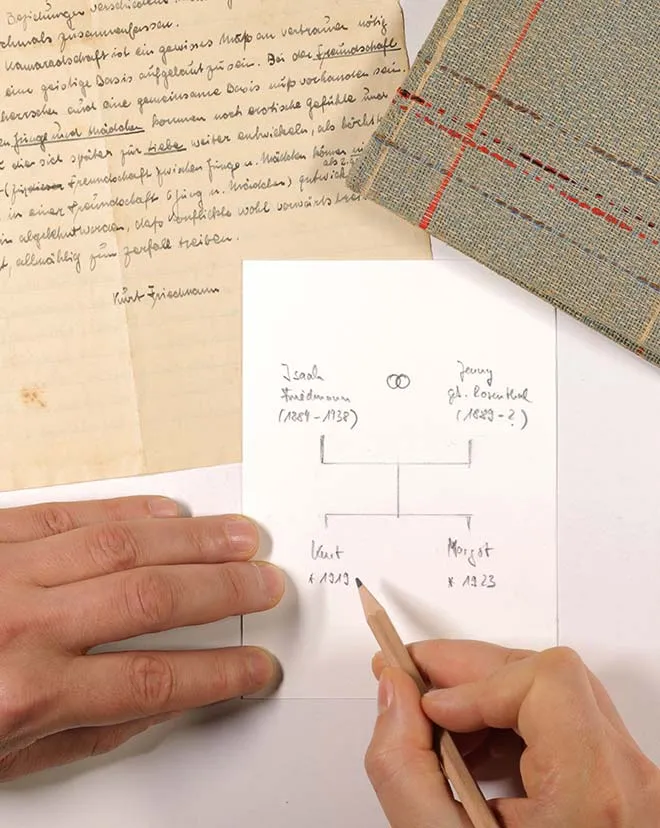 Beziehungen verschiedene
nochmals zusammenfassen.
Kameradschaft ist ein gewisses Maß an vertrauen nötig
eine geistige Basis aufgebaut zu sein. Bei der Freundschaft
herrschen und eine gemeinsame Basis muß vorhanden sein.
Junge und Mädchen kommen noch erotische Gefühle
die sich später für Liebe weiter entwickeln, als höchste
Freundschaft zwischen Junge u. Mädchen können
als z.B.
in einer Freundschaft (Jung u. Mädchen)
abgelehnt werden, daß Konflikte wohl vorwärts
allmählig zum zerfall treiben.
Kurt Friedmann
Isaak
Friedmann
(1884-1938)
Jenny
geb. Rosenthal
(1889-?)
Kurt
* 1919
Margot
* 1923